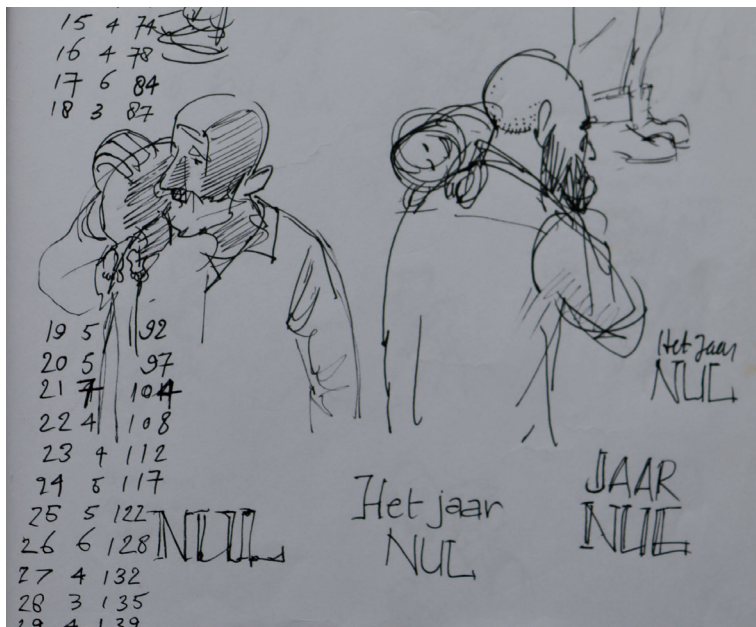 15 4 74
16 4 78
17 6 84
18 3 87
19 5 92
20 5 97
21 7 104
22 4 108
23 4 112
24 5 117
25 5 122
26 6 128
27 4 132
28 3 135
29 4 139
NUL
Het jaar
NUL
Het Jaar
NUL
JAAR
NUL